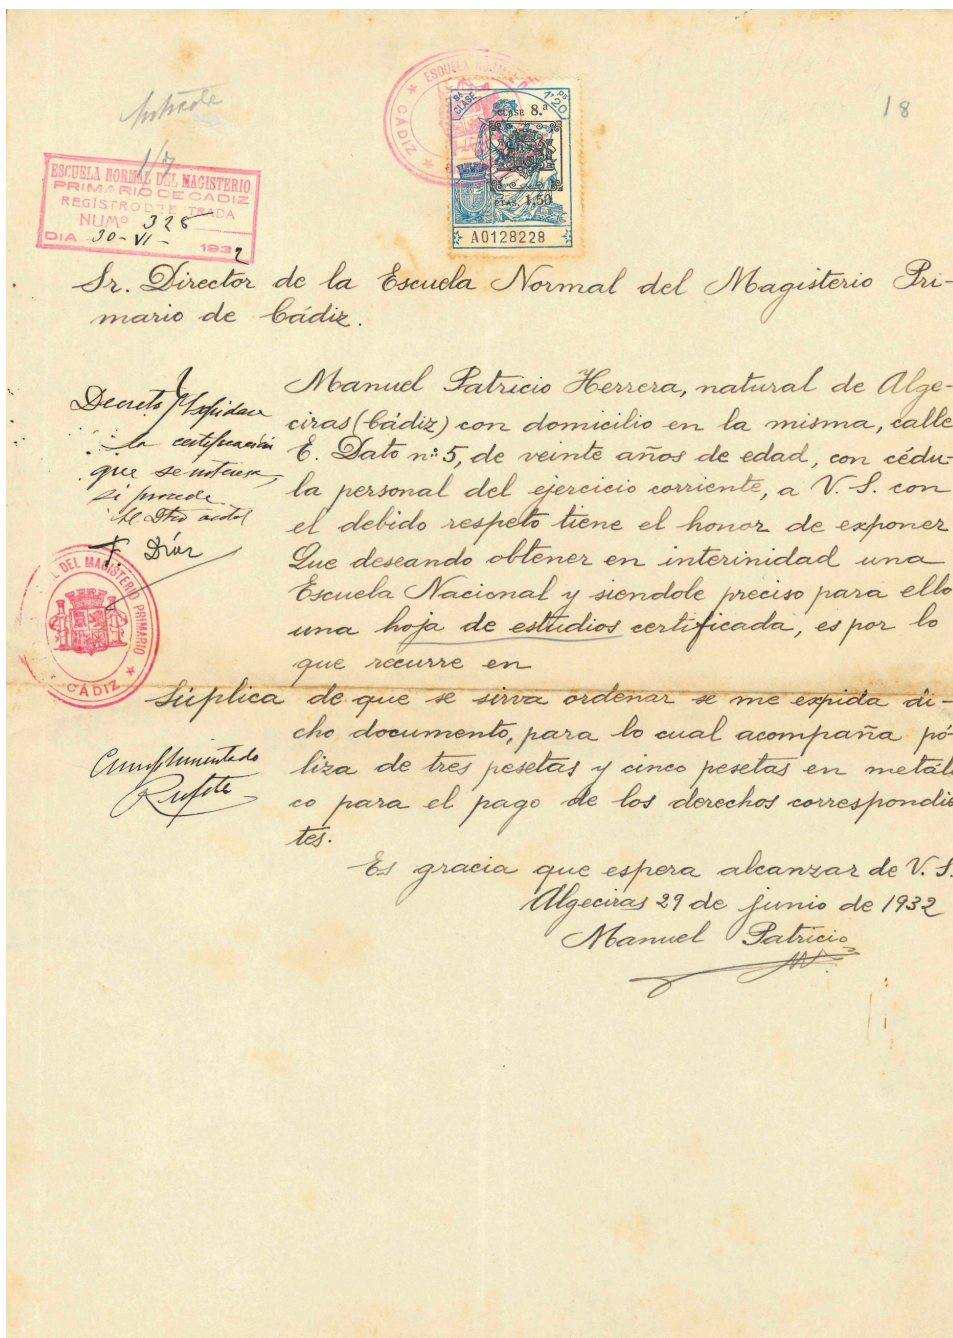 18
Entrada
1/7
ESCUELA NORMAL DEL MAGISTERIO
PRIMARIO DE CADIZ
REGISTRO DE ENTRADA
NUMº 328
DIA 30-VI- 1932
ESCUELA NORMAL
CÁDIZ
8ª CLASE
1'20 PS
CLASE 8.ª
PTAS. 1,50
A0128228
Sr. Director de la Escuela Normal del Magisterio Pri-
mario de Cádiz.
Manuel Patricio Herrera, natural de Alge-
ciras (Cádiz) con domicilio en la misma, calle
E. Dato nº 5, de veinte años de edad, con cédu-
la personal del ejercicio corriente, a V. S. con
el debido respeto tiene el honor de exponer
Que deseando obtener en interinidad una
Escuela Nacional y siendole preciso para ello
una hoja de estudios certificada, es por lo
que recurre en
Súplica de que se sirva ordenar se me expida di-
cho documento, para lo cual acompaña pó-
liza de tres pesetas y cinco pesetas en metáli
co para el pago de los derechos correspondie
tes.
Es gracia que espera alcanzar de V. S.
Algeciras 29 de junio de 1932
Manuel Patricio
Decreto
la certificación
que se interesa,
si procede
F. Díaz
DEL MAGISTERIO PRIMARIO
CÁDIZ
Cumplimentado